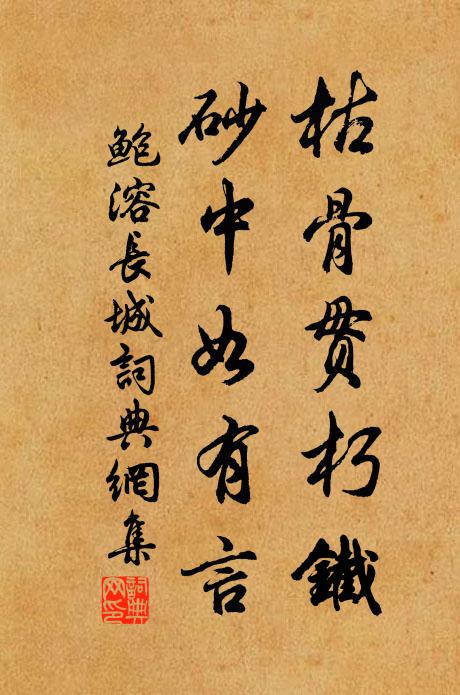 枯骨貫朽鐵
砂中如有言
鮑溶長城詞典網集
詞典网印